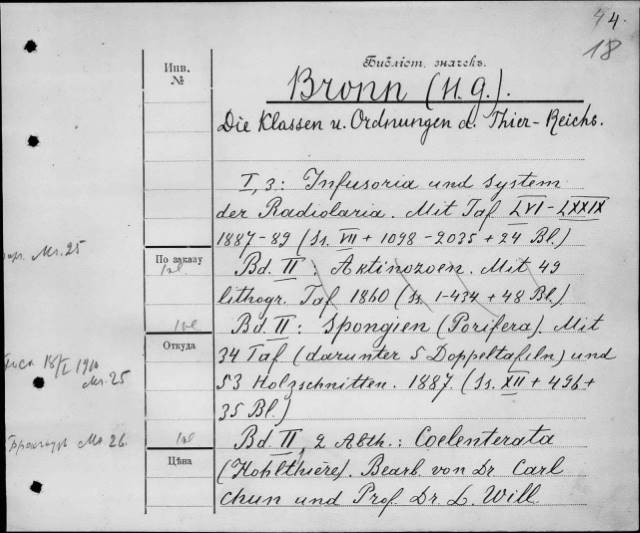 44.
18
Библіот. значекъ.
Инв.
№
Bronn (H. G.).
Die Klassen u. Ordnungen d. Thier-Reichs.
I, 3: Infusoria und System
der Radiolaria. Mit Taf LVI-LXXIX
1887-89 (Ss. VII + 1098-2035 + 24 Bl.)
Mr. 25
По заказу
Bd. II: Aktinozoen. Mit 49
lithogr. Taf 1860 (Ss. 1-434 + 48 Bl.)
Bd. II: Spongien (Porifera). Mit
Откуда
34 Taf (darunter 5 Doppeltafeln) und
18/I 1910
Mr. 25
53 Holzschnitten. 1887. (Ss. XII + 496 +
35 Bl.)
Mr. 26.
Bd. II, 2 Abth.: Coelenterata
Цѣна
(Hohlthiere). Bearb. von Dr. Carl
Chun und Prof. Dr. L. Will